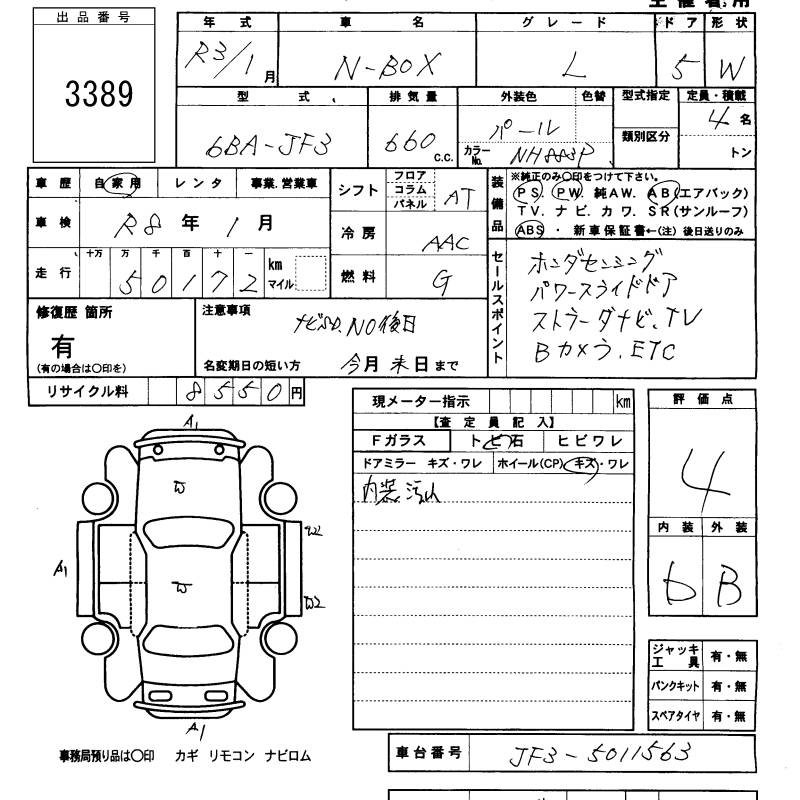 主催者用
出品番号
3389
年式 車名 グレード ドア 形状
R3/1月 N-BOX L 5 W
型式 排気量 外装色 色替 型式指定 定員・積載
6BA-JF3 660 c.c. パール 4名
カラーNo. NH883P 類別区分 トン
車歴 自家用 レンタ 事業.営業車
シフト フロア コラム パネル AT
装備品 ※純正のみ○印をつけて下さい。
PS. PW. 純AW. AB(エアバック)
TV. ナビ. カワ. SR(サンルーフ)
ABS ・ 新車保証書←(注) 後日送りのみ
車検 R8年 1月
冷房 AAC
走行 十万 万 千 百 十 一
50172 km マイル
燃料 G
セールスポイント
ホンダセンシング
パワースライドドア
ストラーダナビ.TV
Bカメラ.ETC
修復歴 箇所
有
(有の場合は○印を)
注意事項
ナビSD.NO後日
名変期日の短い方 今月末日まで
リサイクル料 8550円
現メーター指示 km
【査定員記入】
Fガラス トビ石 ヒビワレ
ドアミラー キズ・ワレ ホイール(CP) キズ・ワレ
内装汚れ
評価点
4
内装 外装
b B
A1
A1
W2
W2
A1
ジャッキ工具 有・無
パンクキット 有・無
スペアタイヤ 有・無
事務局預り品は○印 カギ リモコン ナビロム
車台番号 JF3-5011563